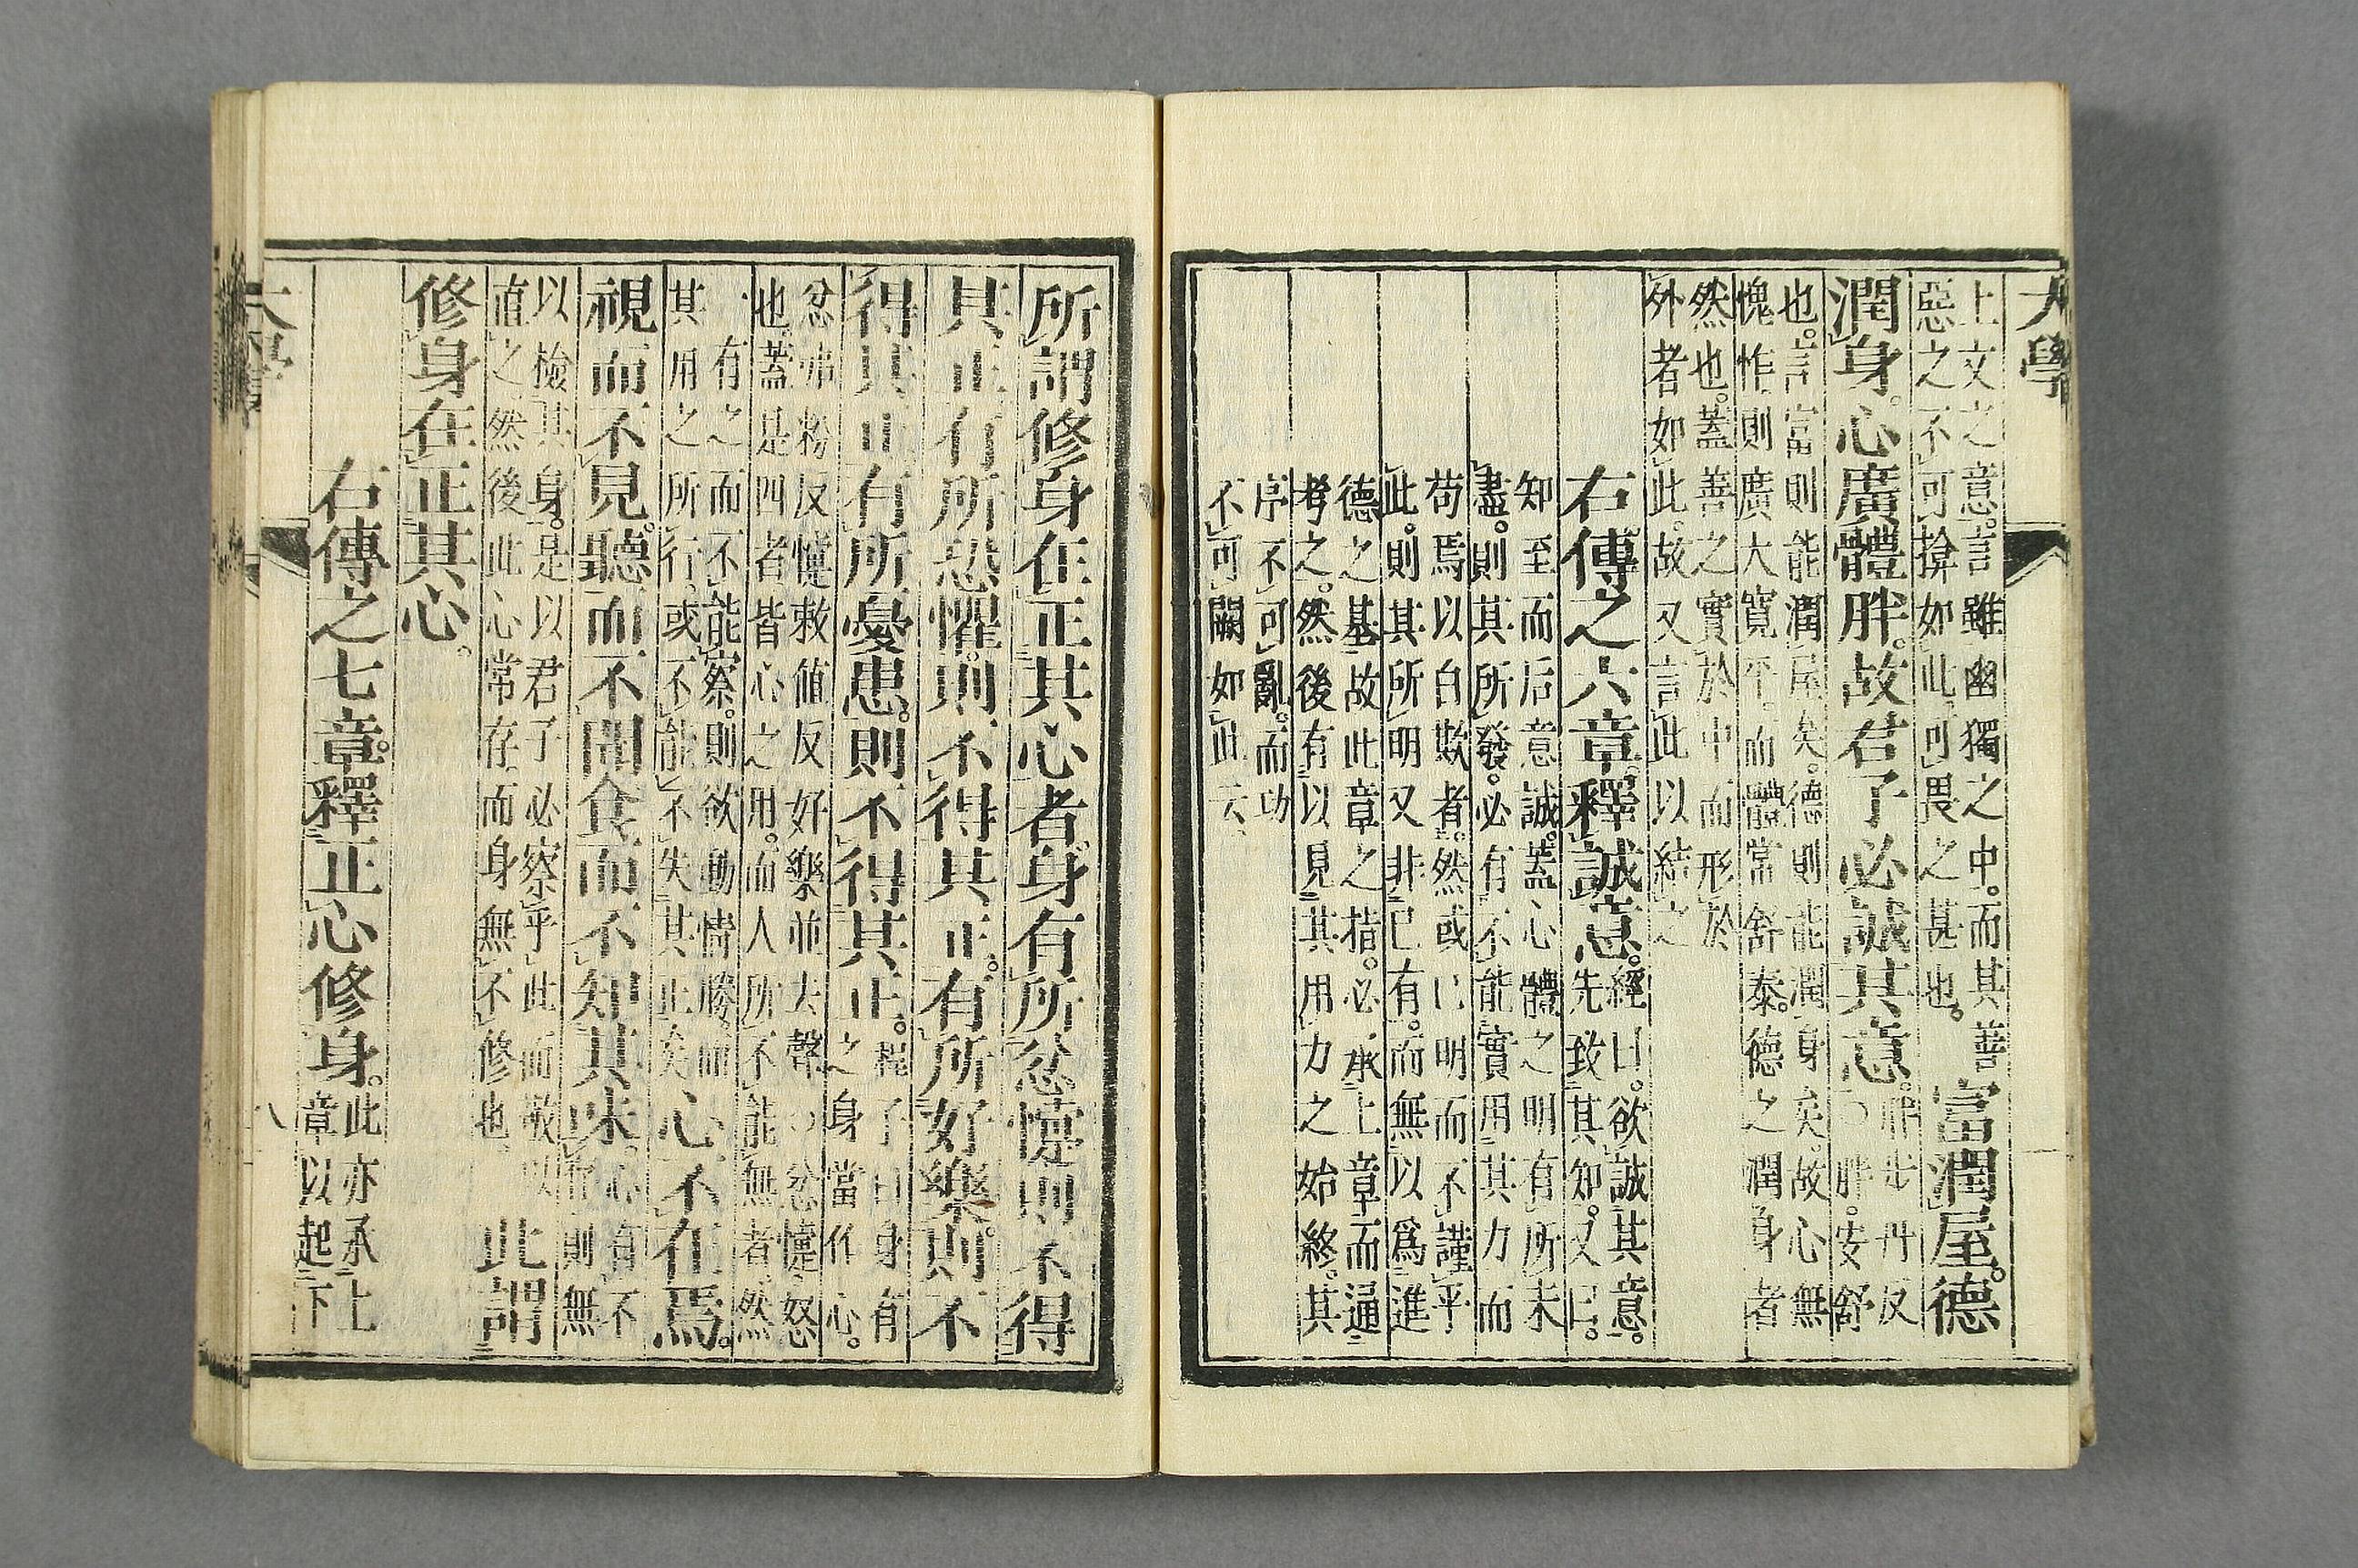 大學
上文之意。言雖幽獨之中。而其善
惡之不可揜如此。可畏之甚也。
富潤屋。德
潤身。心廣體胖。故君子必誠其意。
胖步丹反
○胖。安舒
也。言富則能潤屋矣。德則能潤身矣。故心無
愧怍。則廣大寬平。而體常舒泰。德之潤身者
然也。蓋善之實於中而形於
外者如此。故又言此以結之
右傳之六章。釋誠意。
經曰。欲誠其意。
先致其知。又曰。
知至而后意誠。蓋心體之明有所未
盡。則其所發。必有不能實用其力而
苟焉以自欺者。然或已明而不謹乎
此。則其所明又非己有。而無以爲進
德之基。故此章之指。必承上章而通
考之。然後有以見其用力之始終。其
序不可亂。而功
不可闕如此云。
所謂修身在正其心者。身有所忿懥則不得
其正。有所恐懼。則不得其正。有所好樂。則不
得其正。有所憂患。則不得其正。
程子曰身有
之身當作心。
忿弗粉反懥敕値反好樂並去聲○忿懥。怒
也。蓋是四者皆心之用。而人所不能無者。然
一有之而不能察。則欲動情勝。而
其用之所行。或不能不失其正矣
心不在焉。
視而不見。聽而不聞。食而不知其味。
心有不
存則無
以檢其身。是以君子必察乎此而敬以
直之。然後此心常存。而身無不修也。
此謂
修身在正其心。
右傳之七章。釋正心修身。
此亦承上
章以起下
大學
八